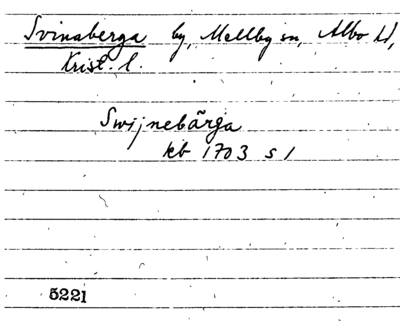 Svinaberga by, Mellby sn, Albo hd,
Krist. l.
Swijnebärga
kb 1703 s 1
5221